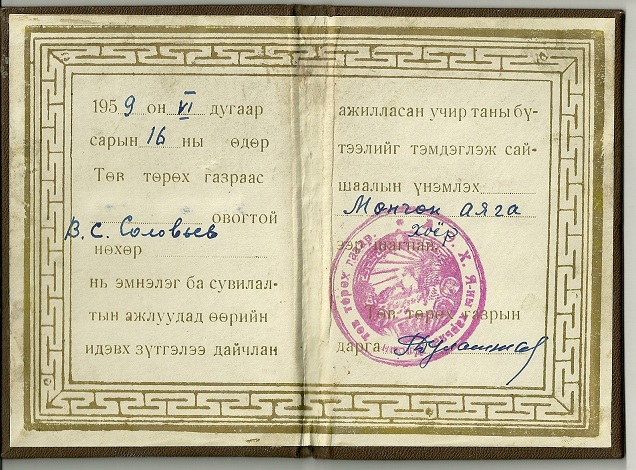 1959 он VI дугаар
сарын 16 ны өдөр
Төв төрөх газраас
В. С. Соловьев овогтой
нөхөр
нь эмнэлэг ба сувилал-
тын ажлуудад өөрийн
идэвх зүтгэлээ дайчлан
ажилласан учир таны бү-
тээлийг тэмдэглэж сай-
шаалын үнэмлэх
Мөнгөн аяга
хоёр
ээр шагнав.
Төв төрөх газрын
дарга